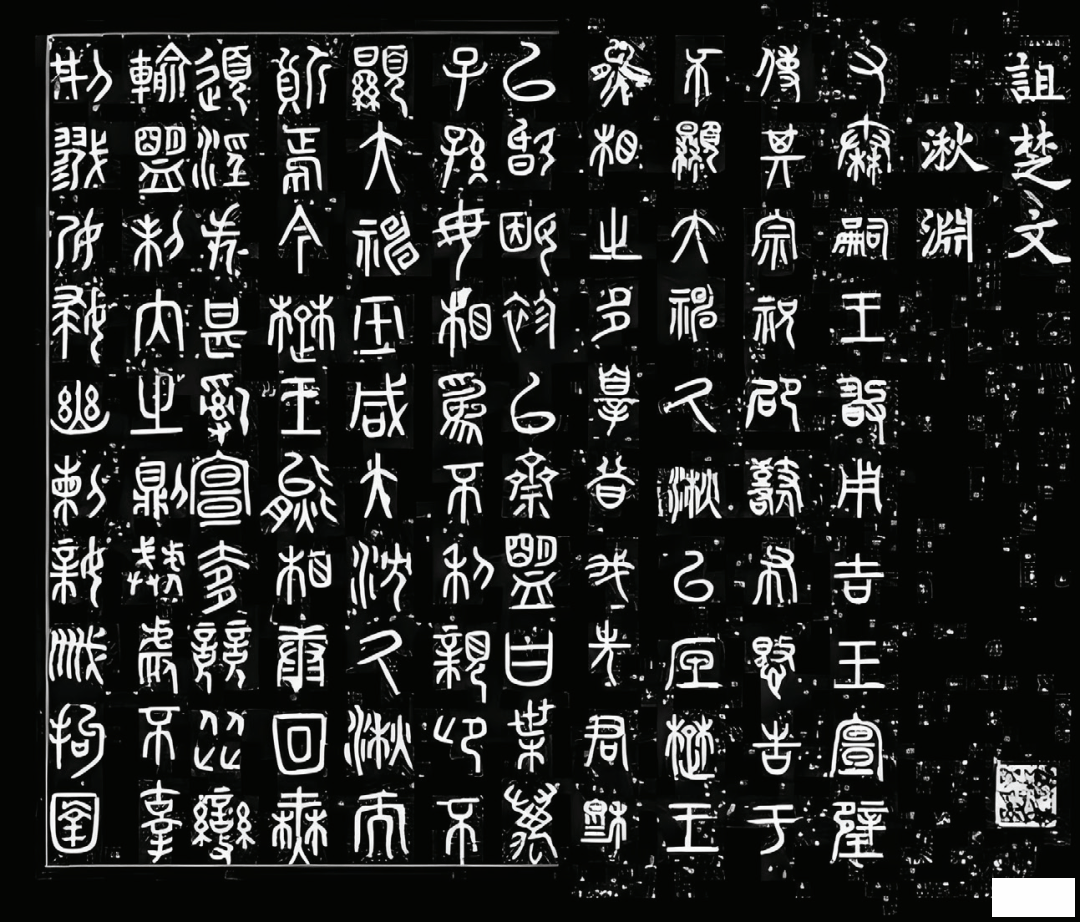 詛楚文
湫淵
又秦嗣王敢用吉玉宣璧
使其宗祝邵鼛布憗告于
不顯大神久湫以底楚王
熊相之多辠昔我先君穆
以婚姻袗以齋盟曰枼萬
子孫毋相為不利親卬不
顯大神巫咸大沈久湫而
質焉今楚王熊相康回無
道淫失甚亂宣侈競從變
輸盟刺內之則虣虐不辜
刑戮孕婦幽刺親戚拘圉